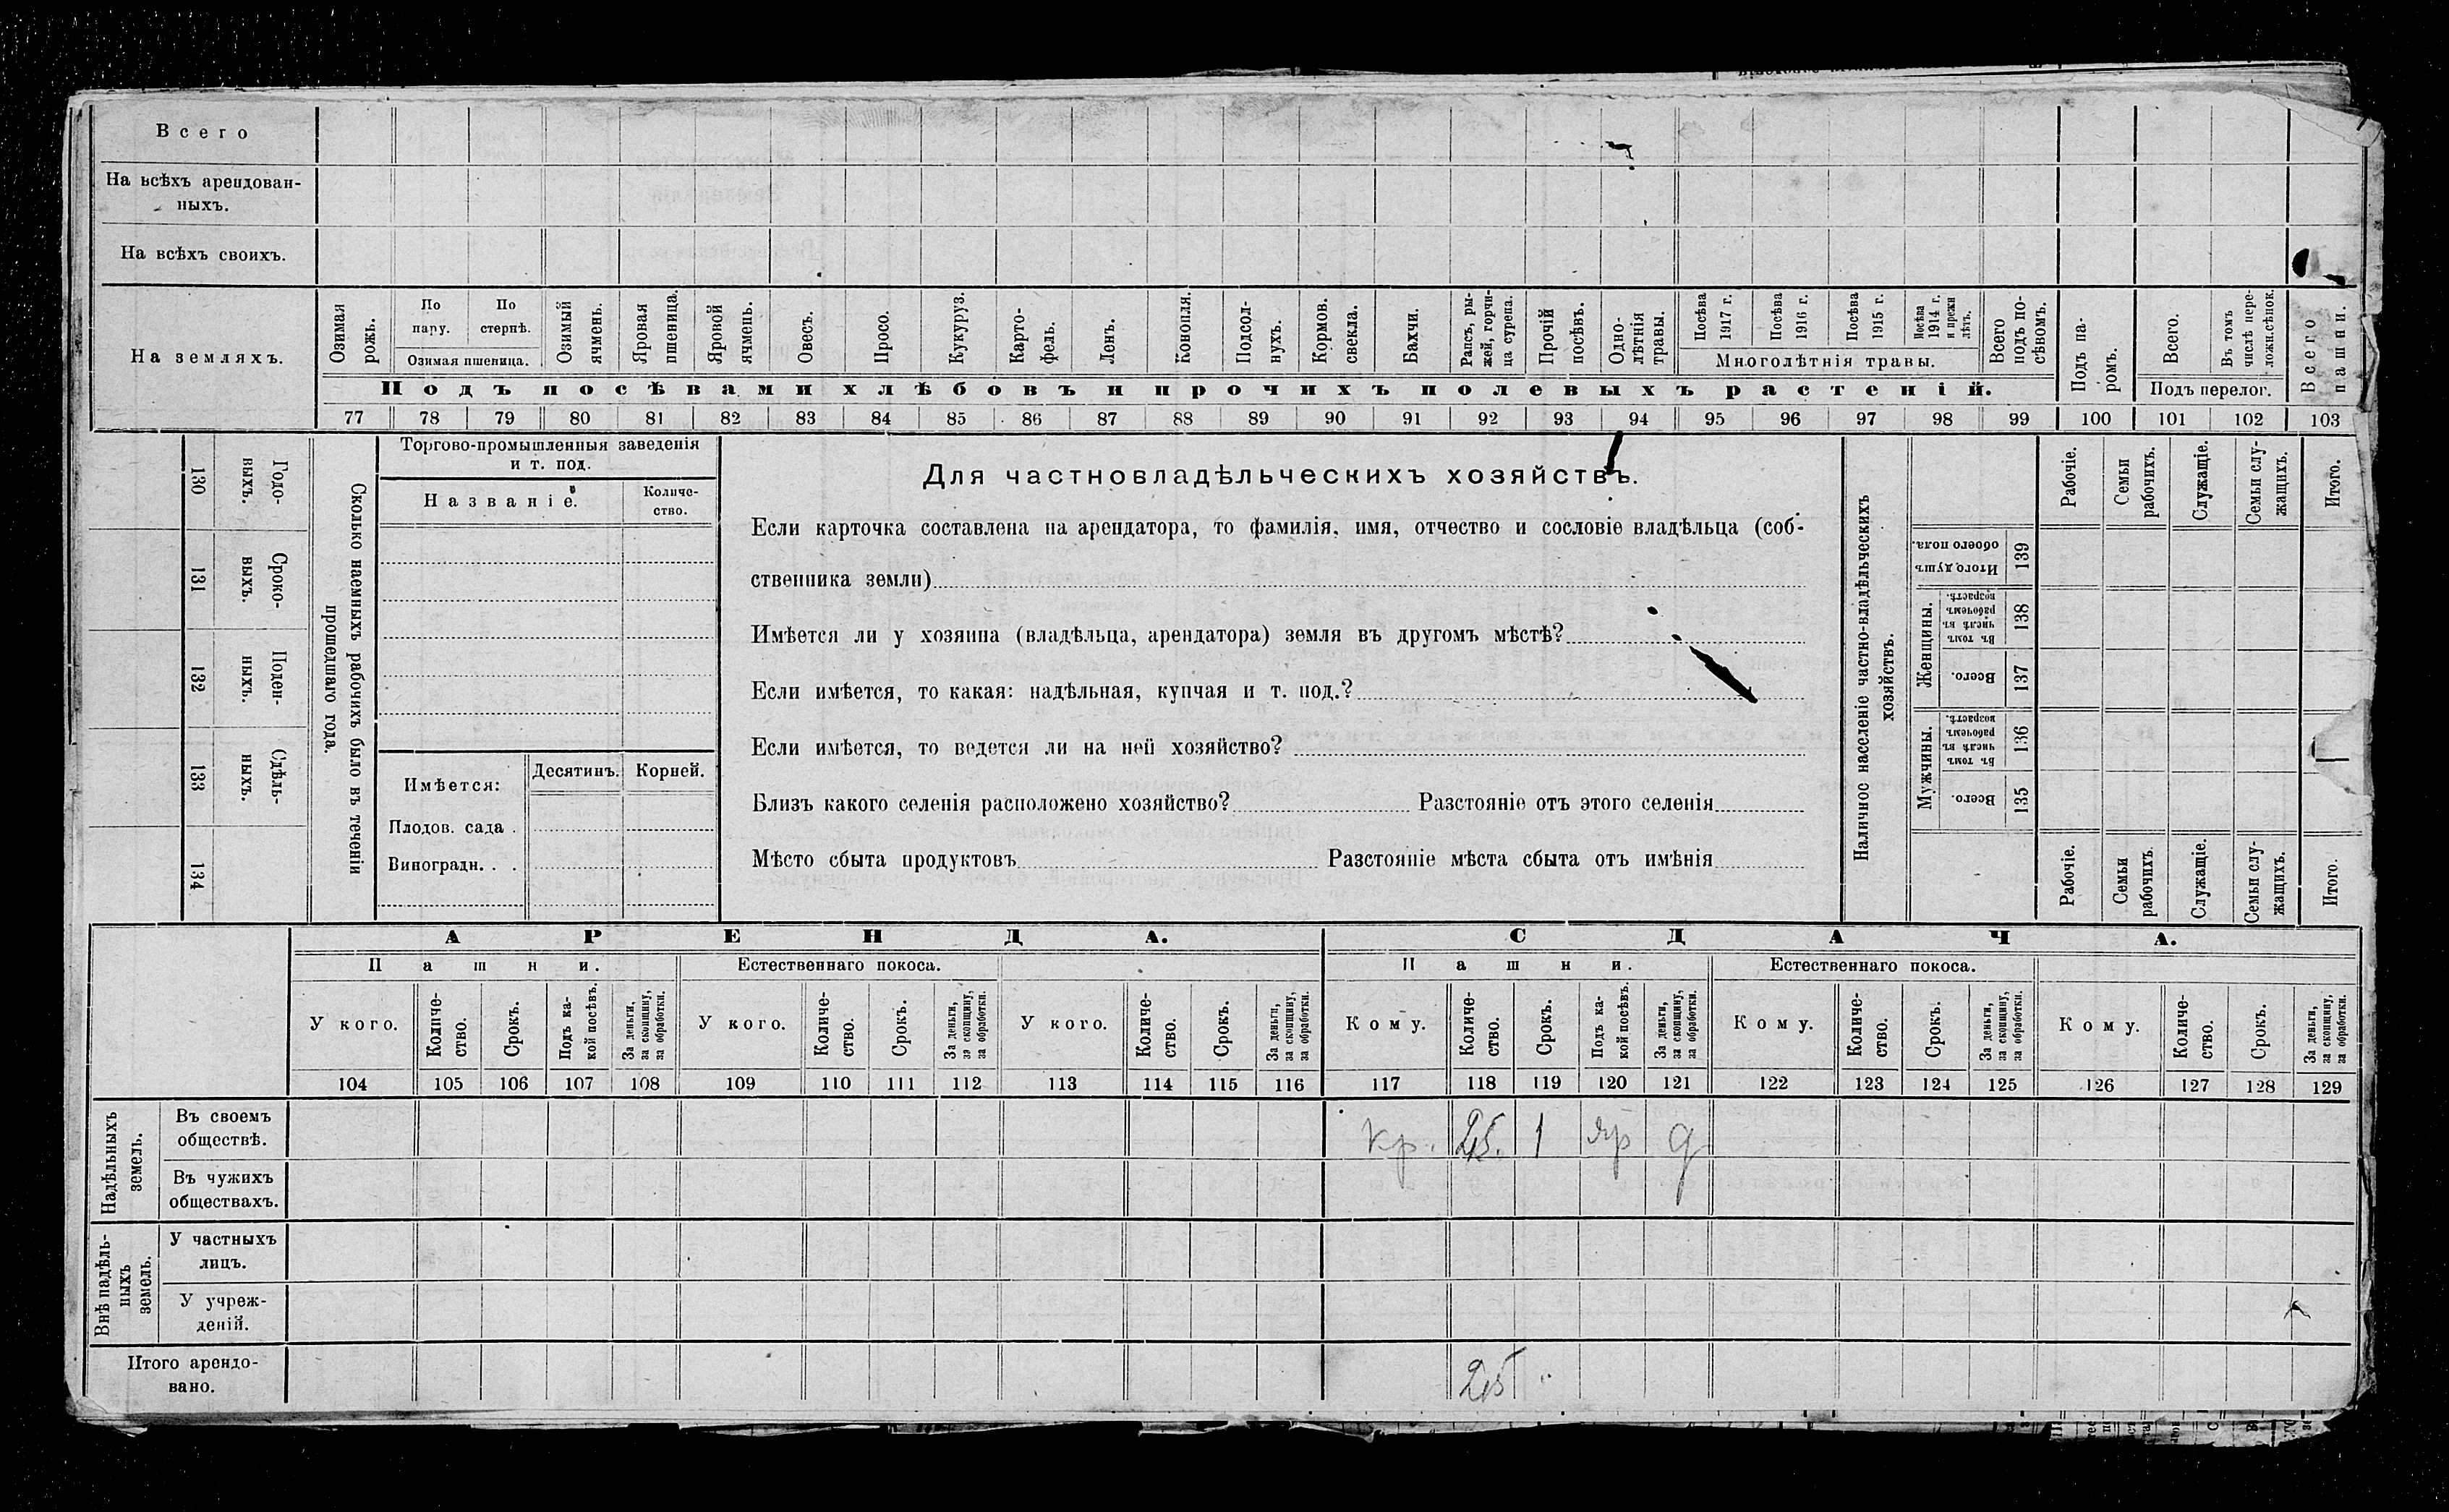 Всего
На всѣхъ арендован-
ныхъ.
На всѣхъ своихъ.
На земляхъ.
Озимая рожь.
По пару.
По стернѣ.
Озимая пшеница.
Озимый ячмень.
Яровая пшеница.
Яровой ячмень.
Овесъ.
Просо.
Кукуруз.
Карто-
фель.
Ленъ.
Конопля.
Подсол-
нухъ.
Кормов. свекла.
Бахчи.
Рапсъ, ры-
жей, горчи-
ца сурепа.
Прочій посѣвъ.
Одно-
лѣтнія травы.
Посѣва 1917 г.
Посѣва 1916 г.
Посѣва 1915 г.
Посѣва 1914 г. и прежн лѣтъ.
Многолѣтнія травы.
Всего подъ по-
сѣвомъ.
Подъ па-
ромъ.
Всего.
Въ томъ числѣ пере-
ложн.сѣнок.
Подъ перелог.
Всего пашни.
Подъ посѣвами хлѣбовъ и прочихъ полевыхъ растеній.
77 78 79 80 81 82 83 84 85 86 87 88 89 90 91 92 93 94 95 96 97 98 99 100 101 102 103
130 Годо-
выхъ.
131 Сроко-
ныхъ.
132 Поден-
ныхъ.
133 Сдѣль-
ныхъ.
134
Сколько наемныхъ рабочихъ было въ теченіи
прошедшаго года.
Торгово-промышленныя заведенія
и т. под.
Названіе.
Количе-
ство.
Имѣется:
Десятинъ.
Корней.
Плодов. сада .
Виноградн. . .
Для частновладѣльческихъ хозяйствъ.
Если карточка составлена на арендатора, то фамилія, имя, отчество и сословіе владѣльца (соб-
ственника земли)
Имѣется ли у хозяина (владѣльца, арендатора) земля въ другомъ мѣстѣ?
Если имѣется, то какая: надѣльная, купчая и т. под.?
Если имѣется, то ведется ли на ней хозяйство?
Близъ какого селенія расположено хозяйство? Разстояніе отъ этого селенія
Мѣсто сбыта продуктовъ Разстояніе мѣста сбыта отъ имѣнія
Наличное населеніе частно-владѣльческихъ
хозяйствъ.
Рабочіе.
Семьи рабочихъ.
Служащіе.
Семьи слу-
жащихъ.
Итого.
Итого душъ обоего пола. 139
Женщины.
Въ томъ числѣ въ рабочемъ возрастѣ. 138
Всего. 137
Мужчины.
Въ томъ числѣ въ рабочемъ возрастѣ. 136
Всего. 135
Рабочіе.
Семьи рабочихъ.
Служащіе.
Семьи слу-
жащихъ.
Итого.
АРЕНДА.
СДАЧА.
Пашни.
Естественнаго покоса.
Пашни.
Естественнаго покоса.
У кого.
Количе-
ство.
Срокъ.
Подъ ка-
кой посѣвъ.
За деньги, за скопщину, за обработки.
У кого.
Количе-
ство.
Срокъ.
За деньги, за скопщину, за обработки.
У кого.
Количе-
ство.
Срокъ.
За деньги, за скопщину, за обработки.
Кому.
Количе-
ство.
Срокъ.
Подъ ка-
кой посѣвъ.
За деньги, за скопщину, за обработки.
Кому.
Количе-
ство.
Срокъ.
За деньги, за скопщину, за обработки.
Кому.
Количе-
ство.
Срокъ.
За деньги, за скопщину, за обработки.
104 105 106 107 108 109 110 111 112 113 114 115 116 117 118 119 120 121 122 123 124 125 126 127 128 129
Надѣльныхъ
земель.
Въ своемъ
обществѣ.
кр. 2,5. 1 яр д
Въ чужихъ
обществахъ.
Внѣ надѣль-
ныхъ
земель.
У частныхъ
лицъ.
У учреж-
деній.
Итого арендо-
вано.
2,5